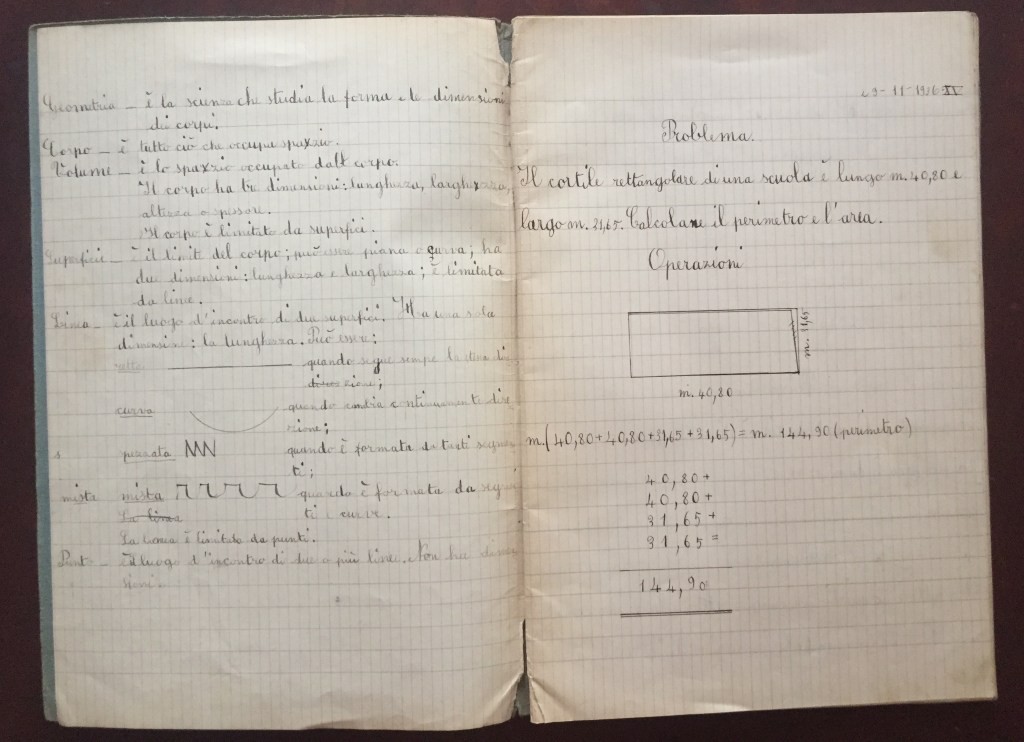 Geometria - è la scienza che studia la forma e le dimensioni
dei corpi.
Corpo - è tutto ciò che occupa spazio.
Volume - è lo spazio occupato dal corpo.
Il corpo ha tre dimensioni: lunghezza, larghezza,
altezza o spessore.
Il corpo è limitato da superfici.
Superficie - è il limite del corpo; può essere piana o curva; ha
due dimensioni: lunghezza e larghezza; è limitata
da linee.
Linea - è il luogo d'incontro di due superfici. Ha una sola
dimensione: la lunghezza. Può essere:
retta quando segue sempre la stessa di
direzione;
curva quando cambia continuamente dire
zione;
spezzata quando è formata da tanti segmen
ti;
mista mista quando è formata da segmen
La linea ti e curve.
La linea è limitata da punti.
Punto - è il luogo d'incontro di due o più linee. Non ha dimen
sioni.
-11-1936-XV
Problema.
Il cortile rettangolare di una scuola è lungo m. 40,80 e
largo m. 31,65. Calcolare il perimetro e l'area.
Operazioni
m. 31,65
m. 40,80
m. (40,80 + 40,80 + 31,65 + 31,65) = m. 144,90 (perimetro)
40,80 +
40,80 +
31,65 +
31,65 =
144,90